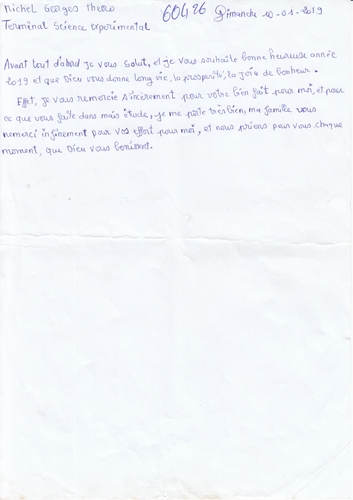 Michel Georges Thera 60426 Dimanche 10-01-2019
Terminal Science experimental
Avant tout d'abord je vous salut, et je vous souhaite bonne heureuse année
2019 et que Dieu vous donne long vie, la prospérité, la Joie de bonheur.
Effet, je vous remercie sincèrement pour votre bien fait pour moi, et pour
ce que vous faite dans mais étude, je me porte très bien, ma famille vous
remerci infiniment pour vos effort pour moi, et nous prions pour vous chaque
moment, que Dieu vous bénisset.